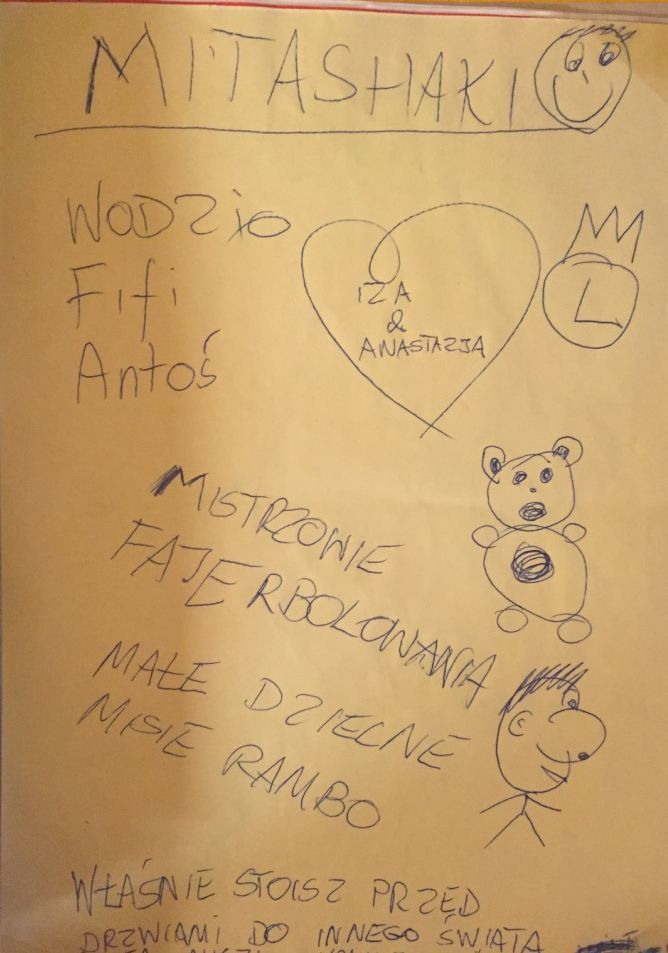 MITASHAKI
WODZiO
Fifi
Antoś
IZA
&
ANASTAZJA
L
MISTRZOWIE
FAJERBOLOWANIA
MAŁE DZIELNE
MISIE RAMBO
WŁAŚNIE STOISZ PRZED
DRZWIAMI DO INNEGO ŚWIATA